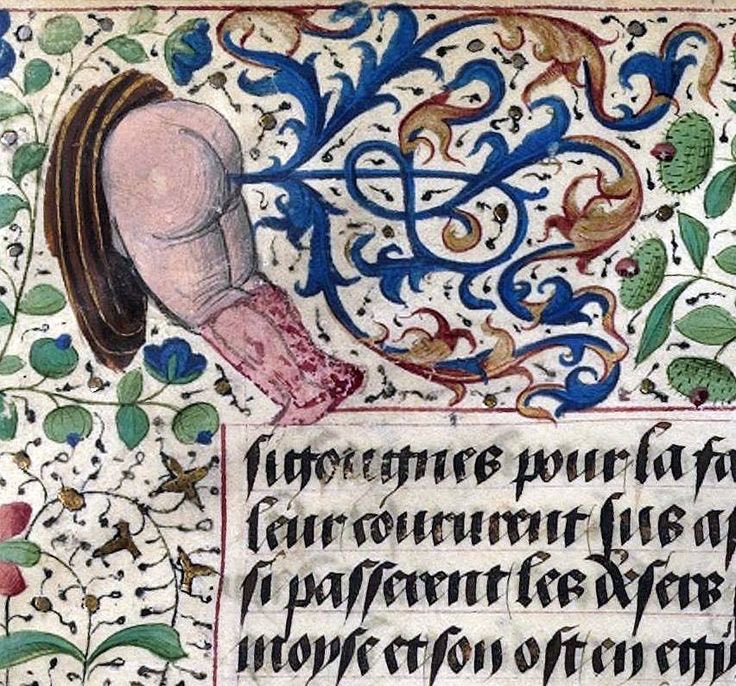 sigougnes pour la fa
leur coururent sus ap
si passerent les desers
moyse et son ost en